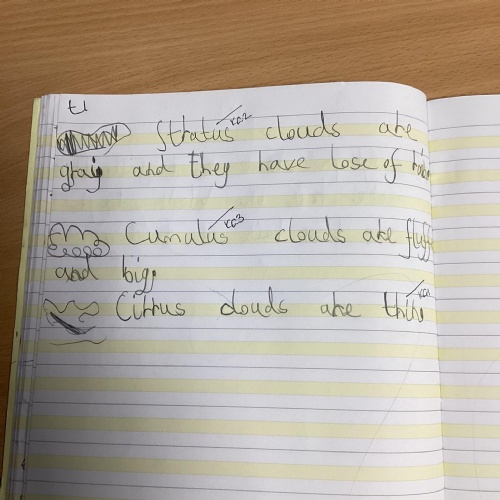 t1
KC2
Stratus clouds are
gray and they have lose of
KC3
Cumulus clouds are fluff
and big.
KC1
Cirrus clouds are thin